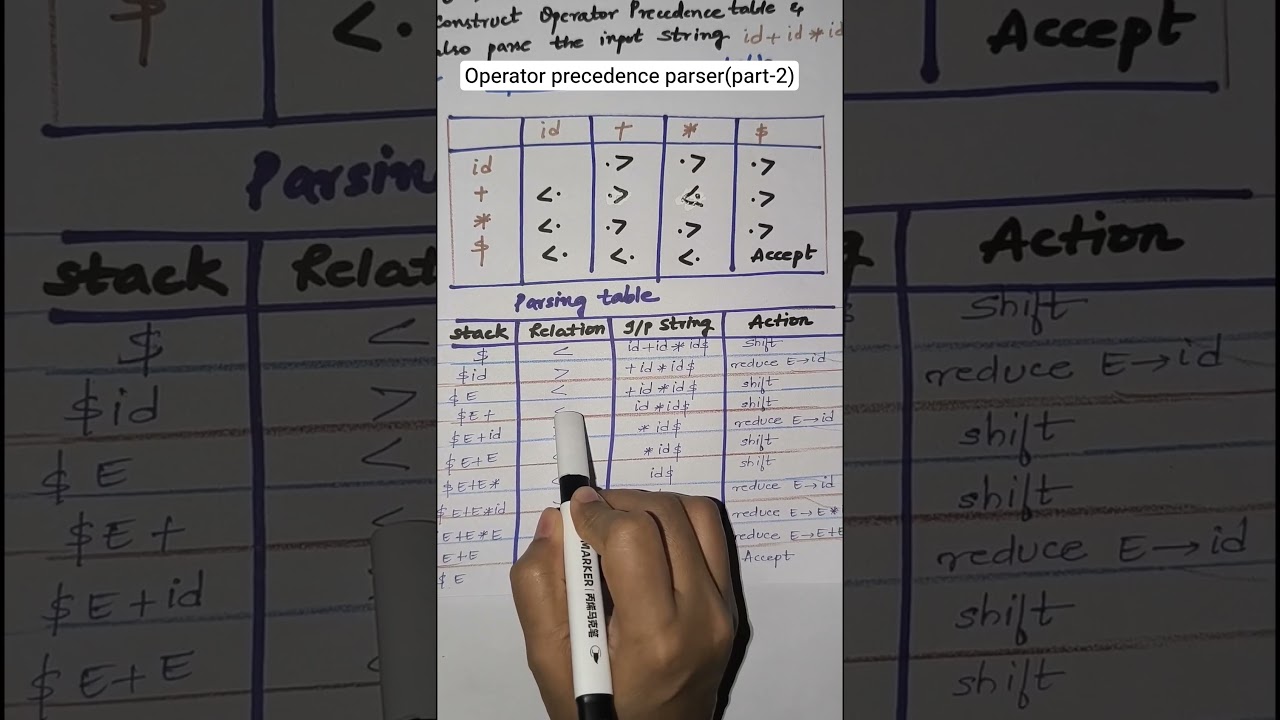 Construct Operator Precedence table &
also parse the input string id + id * id
Operator precedence parser(part-2)
id + * $
id ·> ·> ·>
+ <· ·> <· ·>
* <· ·> ·> ·>
$ <· <· <· Accept
Parsing table
Stack Relation I/p String Action
$ < id+id*id$ shift
$id > +id*id$ reduce E→id
$E < +id*id$ shift
$E+ < id*id$ shift
$E+id *id$ reduce E→id
$E+E < *id$ shift
$E+E* < id$ shift
$E+E*id reduce E→id
E+E*E reduce E→E*
E+E reduce E→E+E
$E Accept
$ <· Accept
Parsin
Stack Relat Action
$ < shift
$id > reduce E→id
$E < shift
$E+ < shift
$E+id reduce E→id
$E+E shift
shift
MARKER